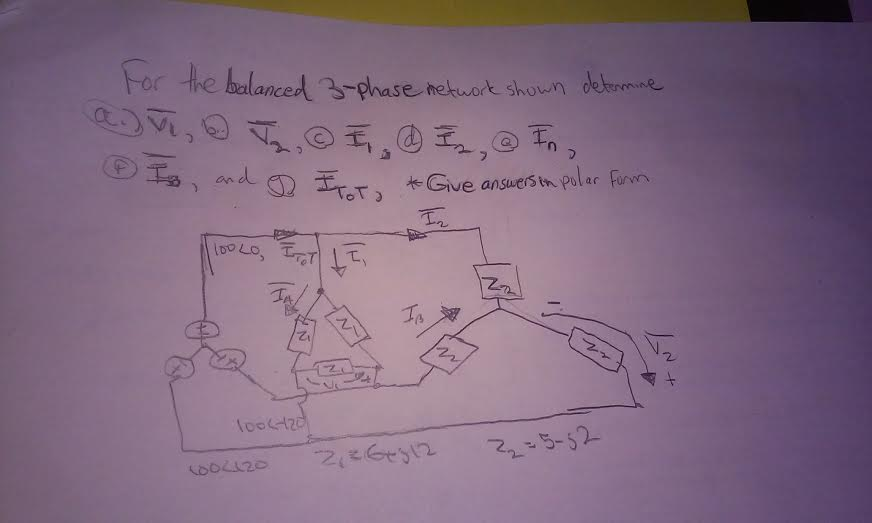 For the balanced 3-phase network shown determine
a.) V̅₁, b. V̅₂, c I̅₁, d I̅₂, e I̅n,
f I̅B, and g I̅TOT, * Give answers in polar form
I̅₂
100<0, I̅TOT I̅₁
I̅A IB Z₂
Z₁ Z₁ Z₂ Z₂ V̅₂
Z₁
- V₁ +
+
100<-120
100<120 Z₁ = 6+j12 Z₂ = 5-j2